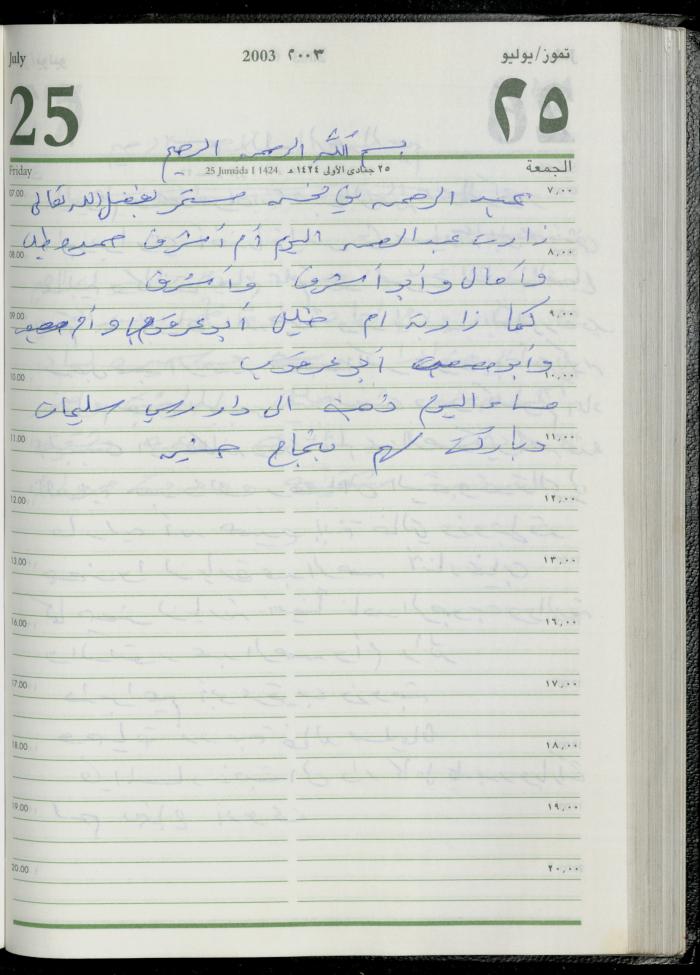 July 2003 ٢٠٠٣ تموز/يوليو
25 ٢٥
بسم الله الرحمن الرحيم
Friday 25 Jumada I 1424 ٢٥ جمادى الأولى ١٤٢٤ هـ الجمعة
07.00 ٧,٠٠
عبد الرحمن في تحسن مستمر بفضل الله تعالى
زارت عبد الرحمن اليوم أم أشرف
08.00 ٨,٠٠
وآمال وأبو أشرف وأشرف
09.00 ٩,٠٠
كما زارته أم خليل أبو عرقوب وأم
وأبو أبو عرقوب
10.00 ١٠,٠٠
مساء اليوم ذهبت الى دار سليمان
11.00 ١١,٠٠
وباركت لهم بنجاح
12.00 ١٢,٠٠
13.00 ١٣,٠٠
16.00 ١٦,٠٠
17.00 ١٧,٠٠
18.00 ١٨,٠٠
19.00 ١٩,٠٠
20.00 ٢٠,٠٠